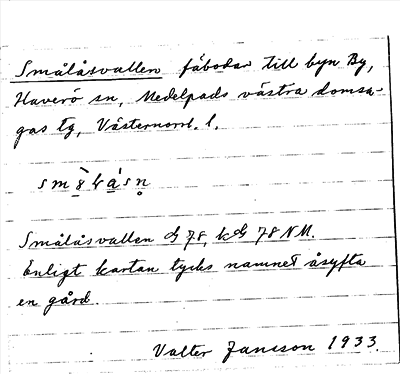 Smålåsvallen fäbodar till byn By,
Haverö sn, Medelpads västra domsa-
gas tg, Västernorrl. l.
Smålåsvallen G 78, kG 78 NM.
Enligt kartan tycks namnet åsyfta
en gård.
Valter Jansson 1933.